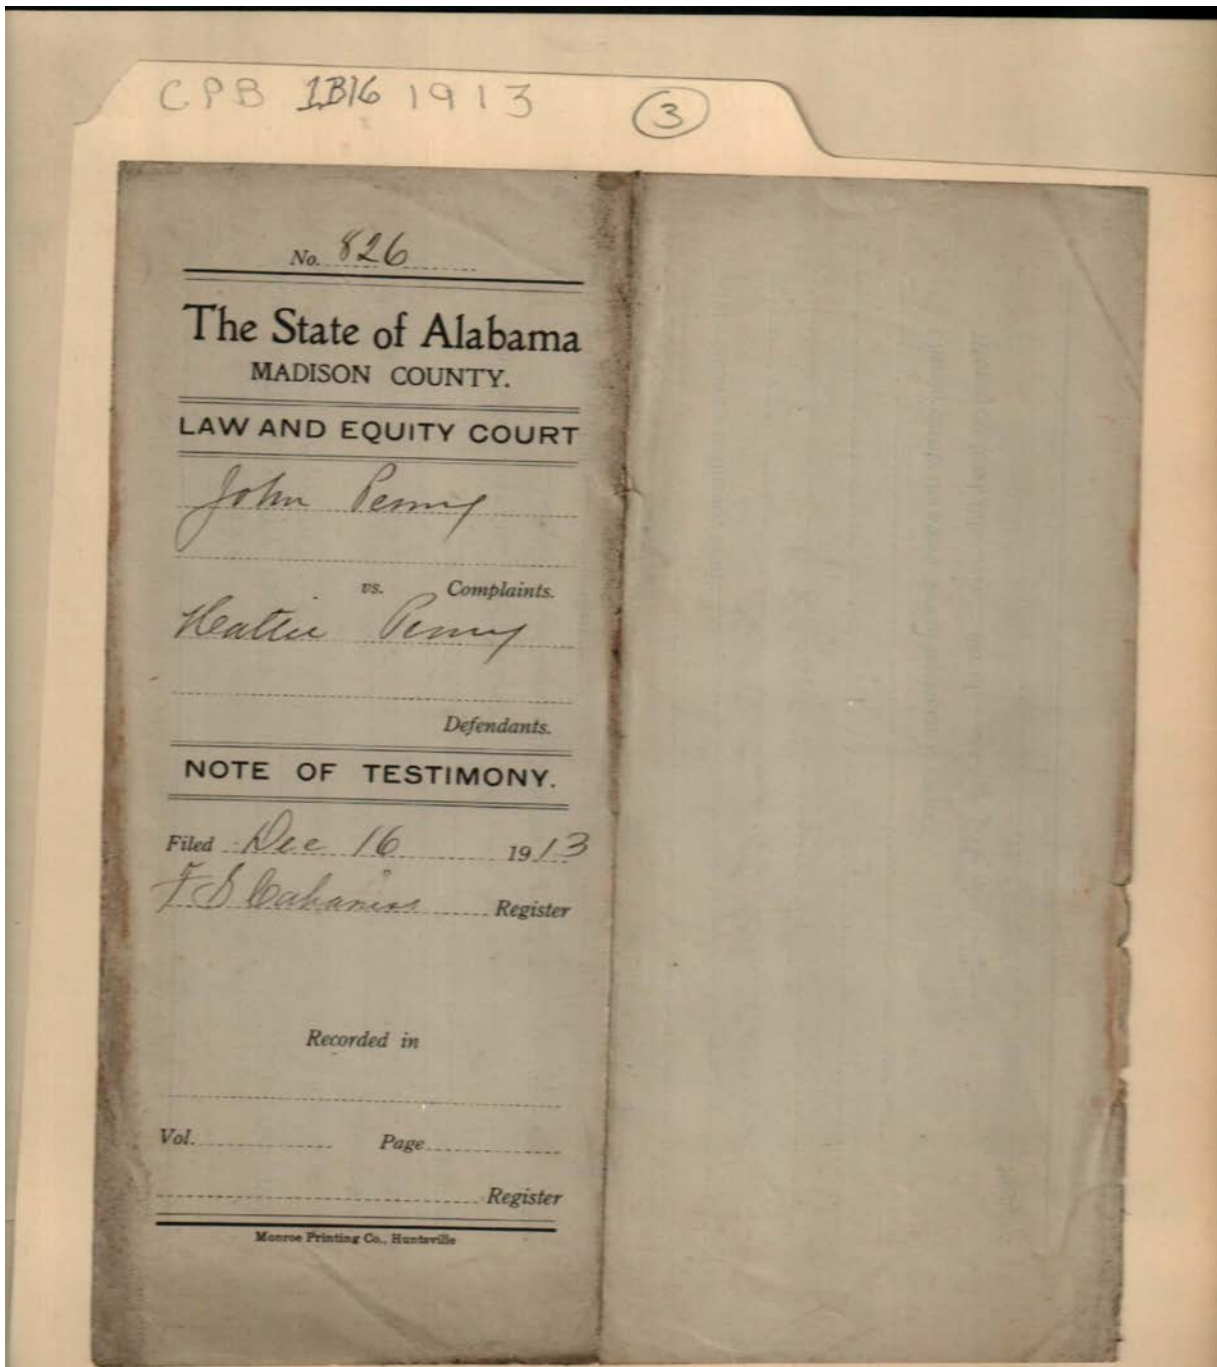 CPB 1B16 1913 3
No. 826
The State of Alabama
MADISON COUNTY.
LAW AND EQUITY COURT
John Penny
vs. Complaints.
Hattie Penny
Defendants.
NOTE OF TESTIMONY.
Filed Dec 16 1913
F S Cabaniss Register
Recorded in
Vol. Page
Register
Monroe Printing Co., Huntsville